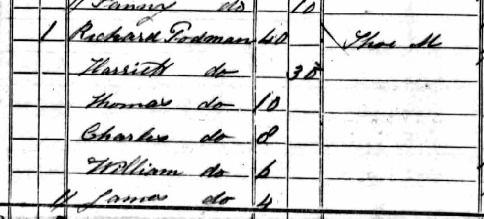 " Fanny do 10
1 Richard Podman 40 Shoe M
Harriett do 30
Thomas do 10
Charles do 8
William do 6
" James do 4